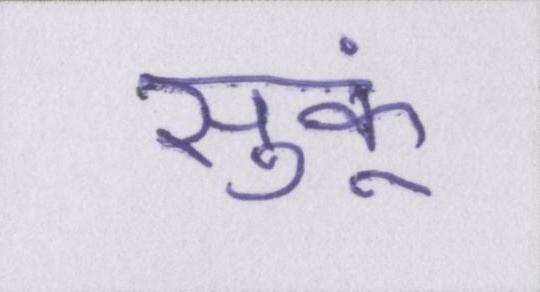 सुकूं